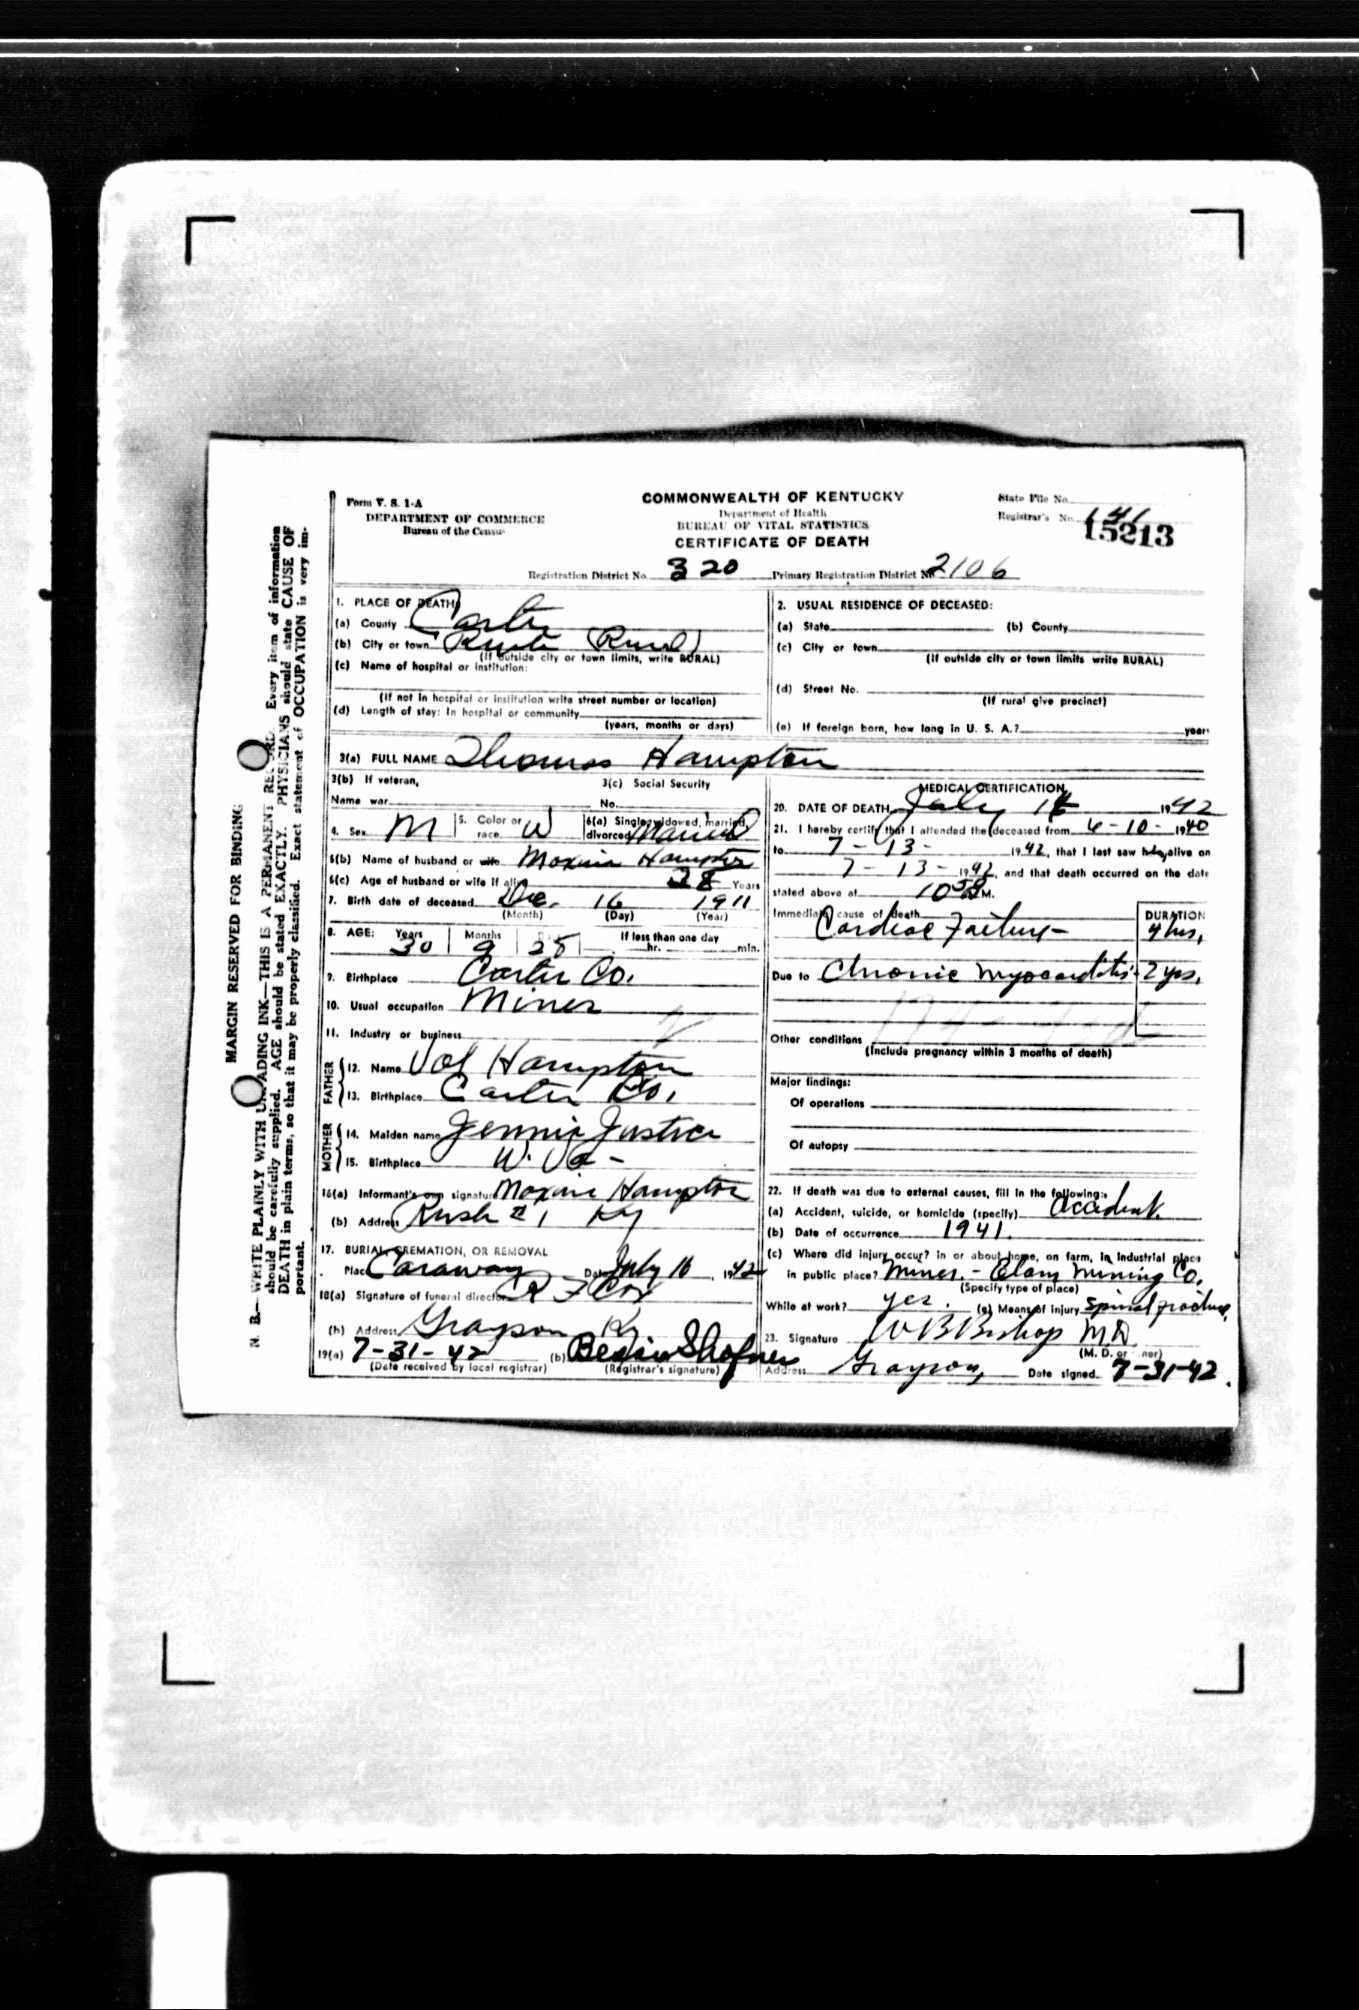 Form V. S. 1-A
DEPARTMENT OF COMMERCE
Bureau of the Census
COMMONWEALTH OF KENTUCKY
Department of Health
BUREAU OF VITAL STATISTICS
CERTIFICATE OF DEATH
State File No.
Registrar's No. 141
15213
Registration District No. 320 Primary Registration District No. 2106
MARGIN RESERVED FOR BINDING
N. B.— WRITE PLAINLY WITH UNFADING INK—THIS IS A PERMANENT RECORD. Every item of information
should be carefully supplied. AGE should be stated EXACTLY. PHYSICIANS should state CAUSE OF
DEATH in plain terms, so that it may be properly classified. Exact statement of OCCUPATION is very im-
portant.
1. PLACE OF DEATH
(a) County Carter
(b) City or town Rush (Rural)
(If outside city or town limits, write RURAL)
(c) Name of hospital or institution:
(If not in hospital or institution write street number or location)
(d) Length of stay: In hospital or community
(years, months or days)
2. USUAL RESIDENCE OF DECEASED:
(a) State (b) County
(c) City or town
(If outside city or town limits write RURAL)
(d) Street No.
(If rural give precinct)
(e) If foreign born, how long in U. S. A.? years
3(a) FULL NAME Thomas Hampton
3(b) If veteran, 3(c) Social Security
Name war No.
4. Sex M 5. Color or race W 6(a) Single, widowed, married, divorced Married
6(b) Name of husband or wife Maxine Hampton
6(c) Age of husband or wife if alive 28 Years
7. Birth date of deceased Dec. 16 1911
(Month) (Day) (Year)
8. AGE: Years Months Days If less than one day
30 9 25 hr. min.
9. Birthplace Carter Co.
10. Usual occupation Miner
11. Industry or business
FATHER
12. Name Val Hampton
13. Birthplace Carter Co.
MOTHER
14. Maiden name Jennie Justice
15. Birthplace W. Va -
16(a) Informant's own signature Maxine Hampton
(b) Address Rush #1 Ky
17. BURIAL, CREMATION, OR REMOVAL
Place Caraway Date July 16, 1942
18(a) Signature of funeral director R F Cox
(b) Address Grayson Ky
19(a) 7-31-42 (b) Bessie Shafner
(Date received by local registrar) (Registrar's signature)
MEDICAL CERTIFICATION
20. DATE OF DEATH July 14 1942
21. I hereby certify that I attended the deceased from 6-10- 1940
to 7-13- 1942, that I last saw him alive on
7-13-1942, and that death occurred on the date
stated above at 10 M.
Immediate cause of death DURATION
Cardiac Failure- 4 hrs,
Due to Chronic myocarditis- 2 yrs.
Other conditions
(Include pregnancy within 3 months of death)
Major findings:
Of operations
Of autopsy
22. If death was due to external causes, fill in the following:
(a) Accident, suicide, or homicide (specify) accident.
(b) Date of occurrence 1941.
(c) Where did injury occur? in or about home, on farm, in industrial place
in public place? Mines. - Elam Mining Co.
(Specify type of place)
While at work? yes. (e) Means of injury spinal fracture.
23. Signature W B Bishop M D
(M. D. or other)
Address Grayson, Date signed 7-31-42.